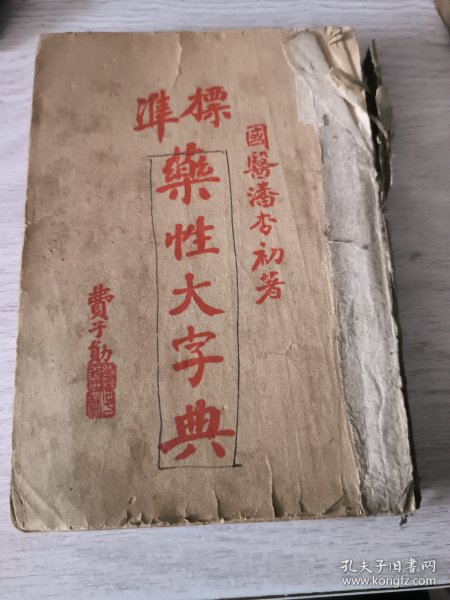 國醫潘杏初著
標準
藥性大字典
費子彬
孔夫子旧书网
www.kongfz.com